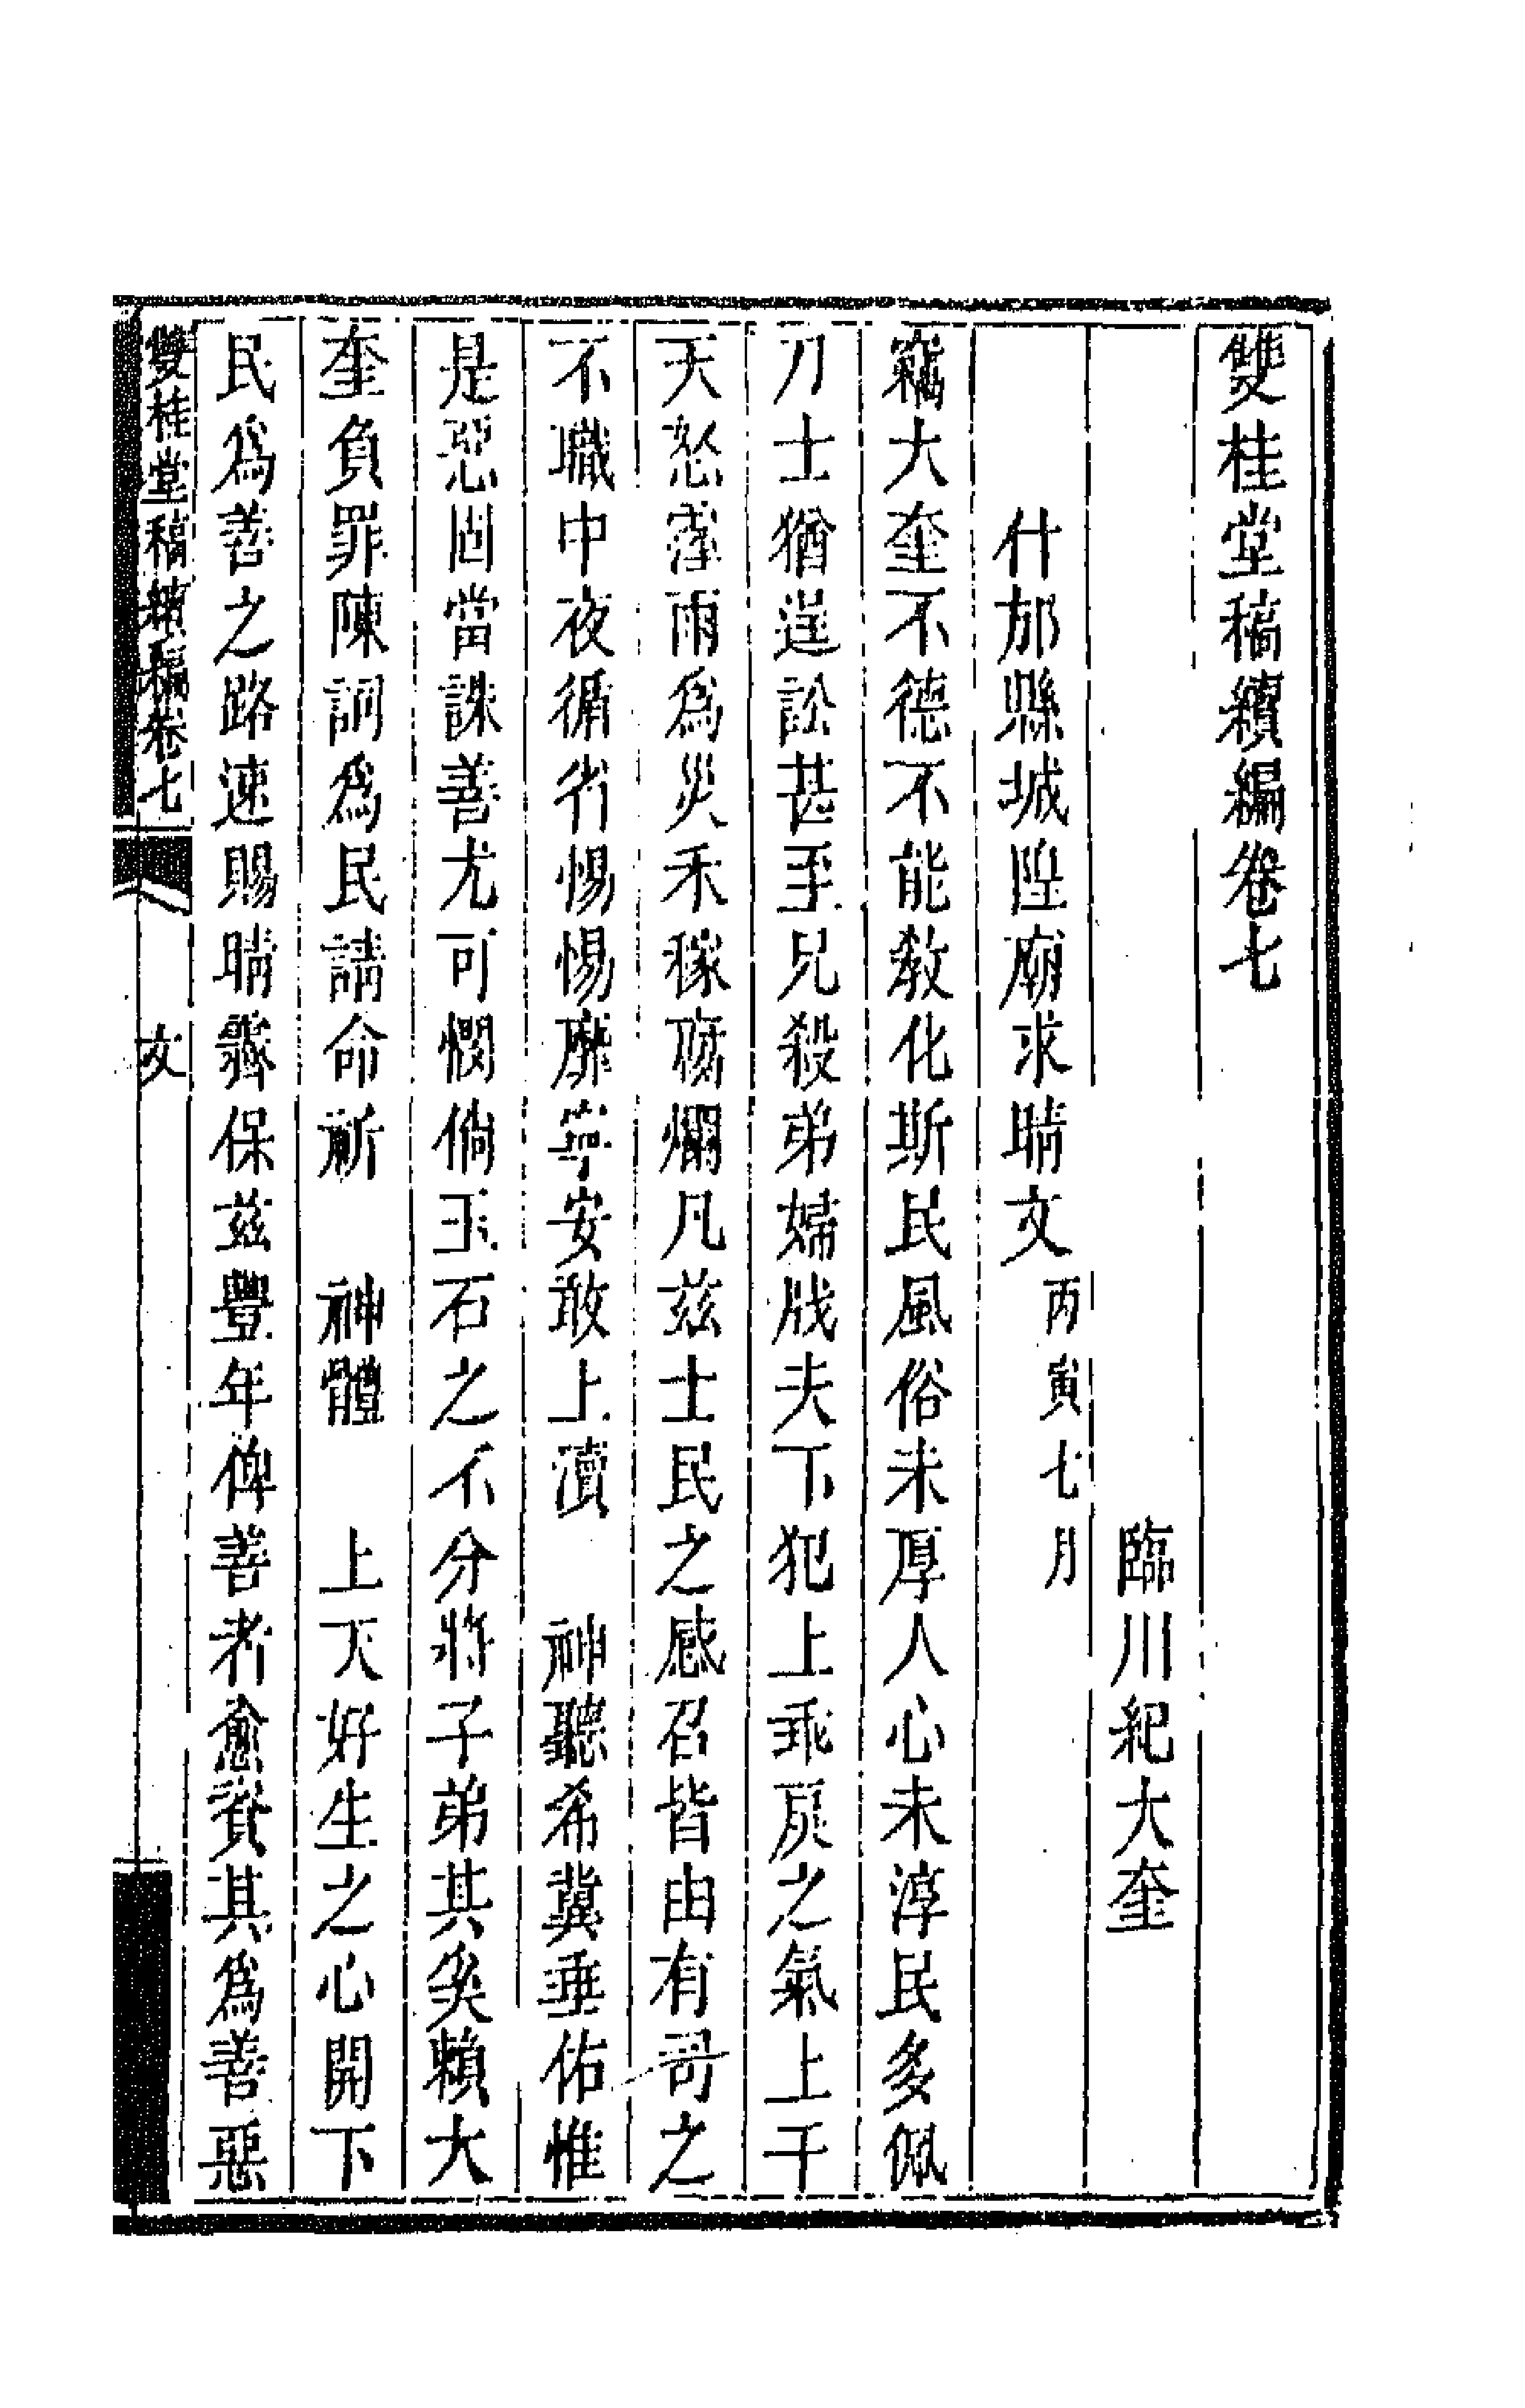 雙桂堂稿續編卷七
臨川紀大奎
什邡縣城隍廟求晴文丙寅七月
竊大奎不德不能教化斯民風俗未厚人心未淳民多佩
刀士猶逞訟甚至兄殺弟婦戕夫下犯上乖戾之氣上干
天怒霪雨爲災禾稼腐爛凡兹士民之感召皆由有司之
不職中夜循省惕惕靡寧安敢上瀆 神聽希冀垂佑惟
是惡固當誅善尤可憫倘玉石之不分將子弟其奚賴大
奎負罪陳詞爲民請命祈 神體 上天好生之心開下
民爲善之路速賜晴霽保兹豐年俾善者愈資其爲善惡
雙桂堂稿續編卷七 文